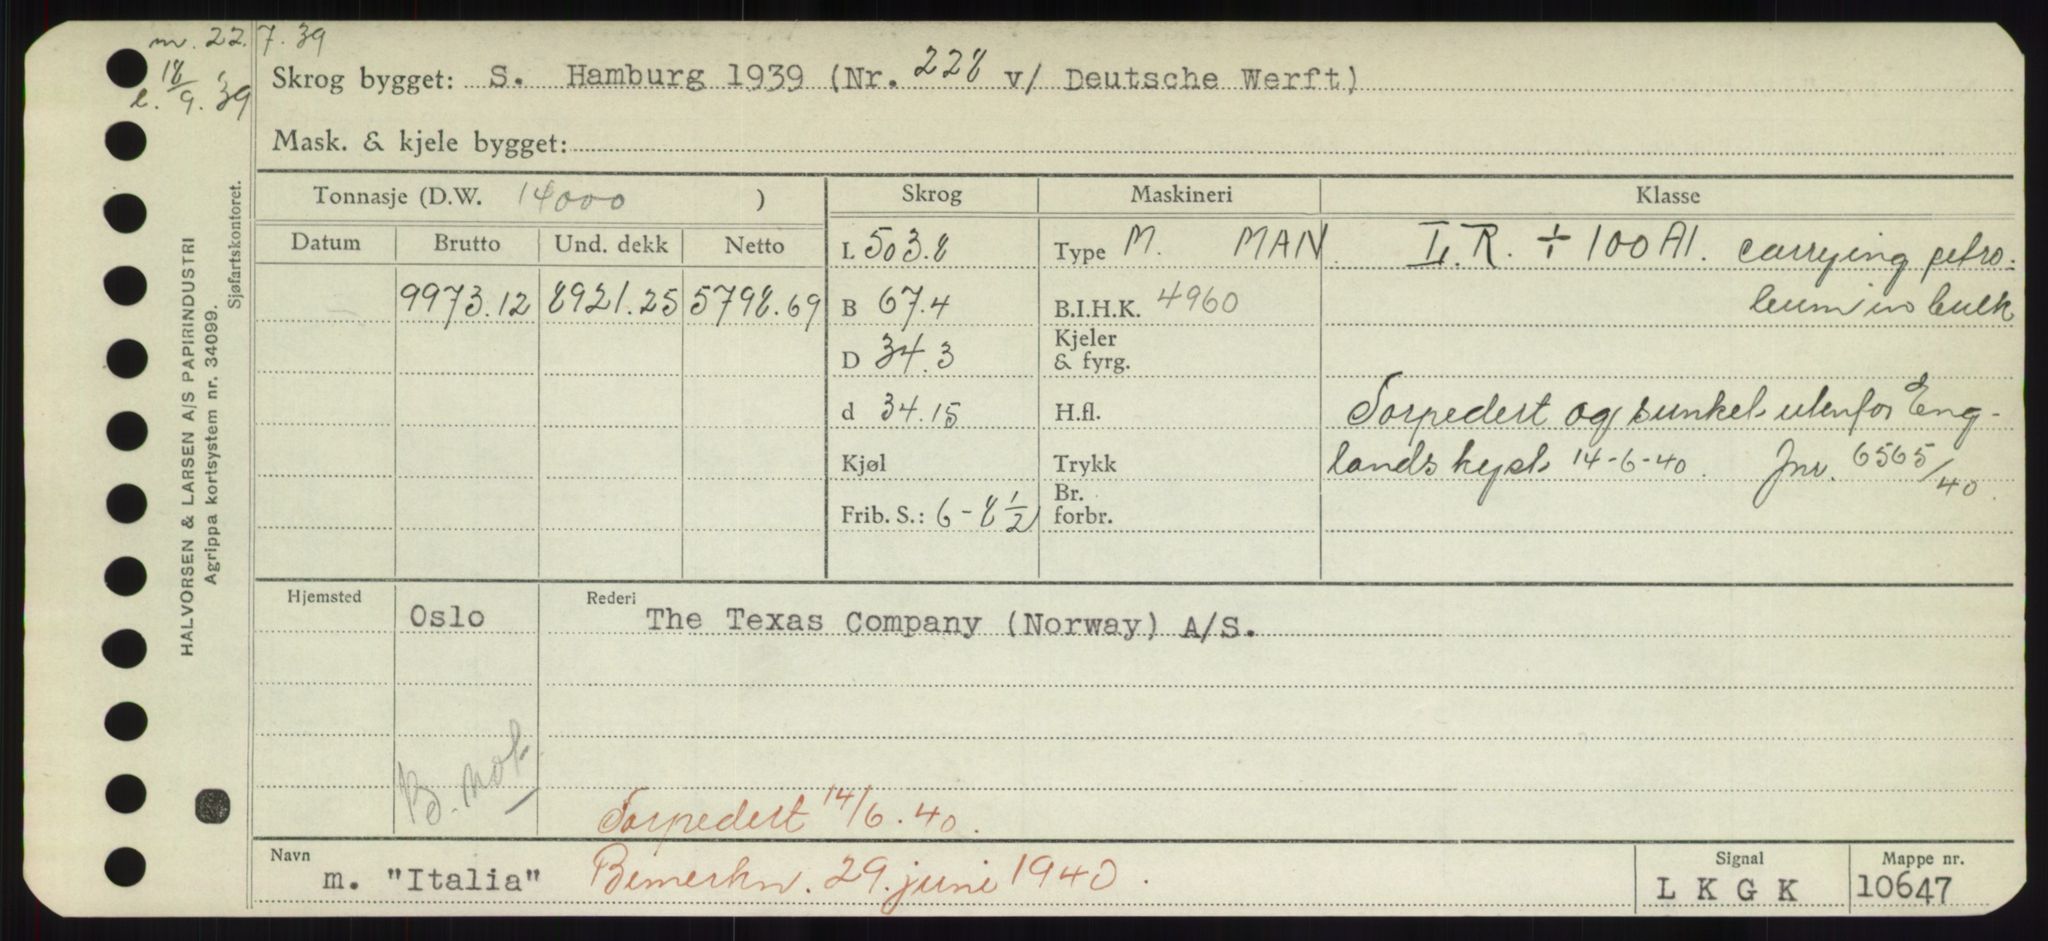 m. 22.7.39
l. 18/9.39
Skrog bygget: S. Hamburg 1939 (Nr. 228 v/ Deutsche Werft)
Mask. & kjele bygget:
Tonnasje (D.W. 14000 )
Skrog
Maskineri
Klasse
Datum
Brutto
Und. dekk
Netto
9973.12
8921.25
5798.69
L 503.8
B 67.4
D 34.3
d 34.15
Kjøl
Frib. S.: 6-8 1/2
Type M. MAN.
B.I.H.K. 4960
Kjeler
& fyrg.
H.fl.
Trykk
Br.
forbr.
L.R. ✢ 100 A1. carrying petro-
leum in bulk
Torpedert og sunket utenfor Eng-
lands kyst 14-6-40. Jnr. 6565/40.
Hjemsted
Oslo
Rederi
The Texas Company (Norway) A/S.
Torpedert 14/6.40.
Navn
m. "Italia"
Bemerkn. 29. juni 1940.
Signal
LKGK
Mappe nr.
10647
HALVORSEN & LARSEN A/S PAPIRINDUSTRI
Agrippa kortsystem nr. 34099.
Sjøfartskontoret.